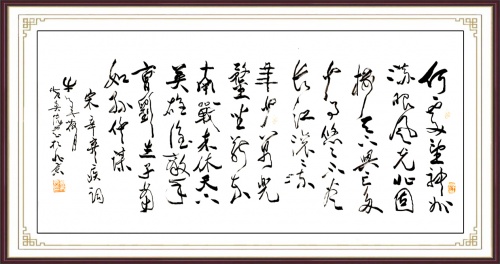 何處望神州
满眼風光北固
楼千古興亡多
少事悠悠不尽
長江滚滚流
年少萬兜
鍪坐断東
南戰未休天下
英雄誰敵手
曹劉生子當
如孙仲謀
宋辛弃疾詞